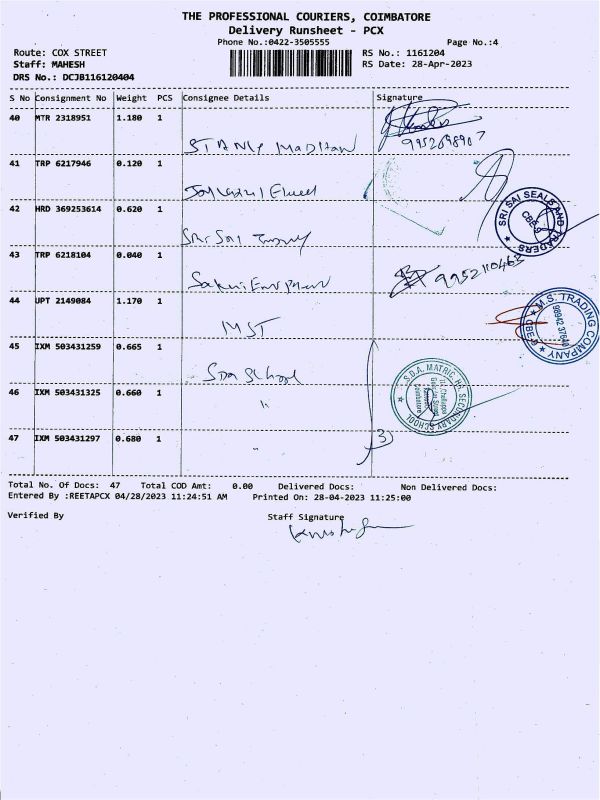 THE PROFESSIONAL COURIERS, COIMBATORE
Delivery Runsheet - PCX
Phone No.:0422-3505555 Page No.:4
Route: COX STREET RS No.: 1161204
Staff: MAHESH RS Date: 28-Apr-2023
DRS No.: DCJB116120404
S No Consignment No Weight PCS Consignee Details Signature
40 MTR 2318951 1.180 1
41 TRP 6217946 0.120 1
42 HRD 369253614 0.620 1
SRI SAI SEALS AND TRADERS
CBE-9
43 TRP 6218104 0.040 1
9952110463
44 UPT 2149084 1.170 1
MST
M.S. TRADING COMPANY
98942 37640
45 IXM 503431259 0.665 1
SDA School
S.D.A. MATRIC. HR. SECONDARY SCHOOL
46 IXM 503431325 0.660 1
"
47 IXM 503431297 0.680 1
"
3
Total No. Of Docs: 47 Total COD Amt: 0.00 Delivered Docs: Non Delivered Docs:
Entered By :REETAPCX 04/28/2023 11:24:51 AM Printed On: 28-04-2023 11:25:00
Verified By Staff Signature